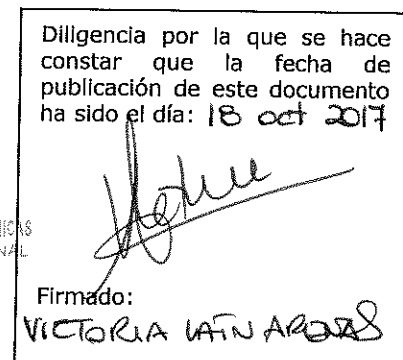 Diligencia por la que se hace
constar que la fecha de
publicación de este documento
ha sido el día: 18 oct 2017
Firmado:
VICTORIA